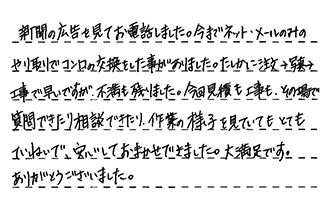 新聞の広告を見てお電話しました。今までネット・メールのみの
やり取りでコンロの交換をした事がありました。たしかに注文→写真→
工事で早いですが、不満も残りました。今回見積も工事も、その場で
質問できたり相談できたり、作業の様子を見ていてもとても
ていねいで、安心しておまかせできました。大満足です。
ありがとうございました。